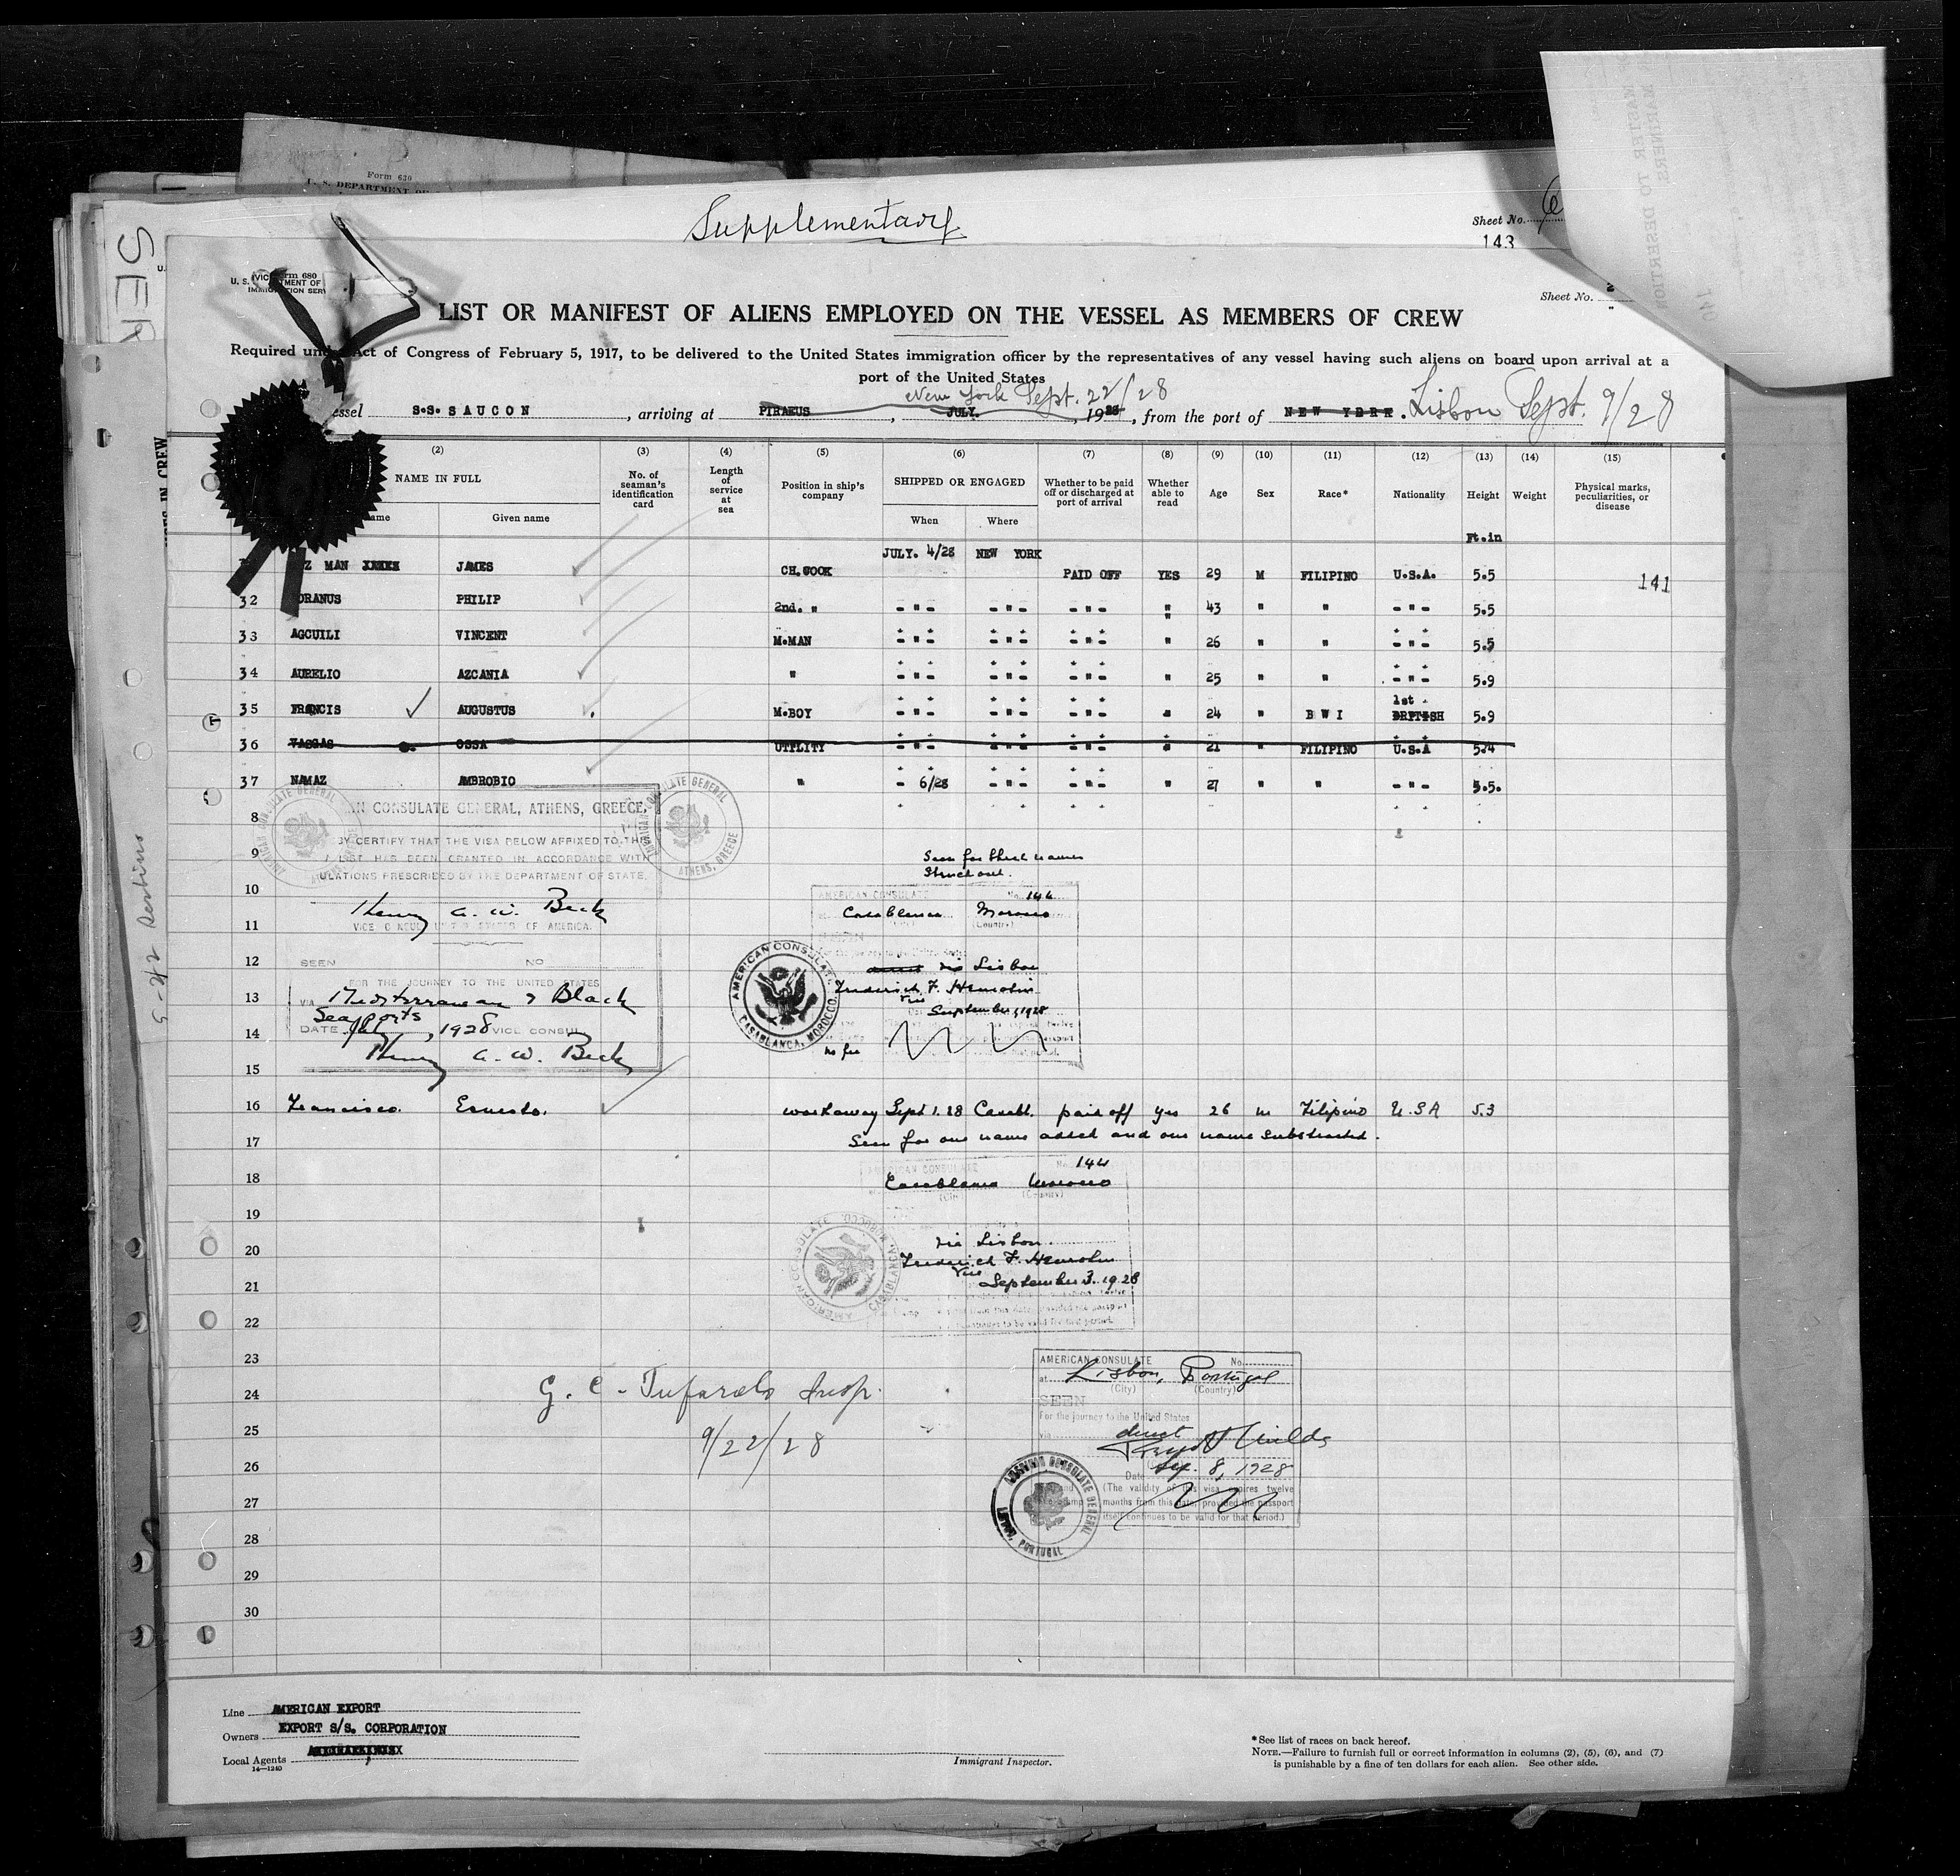 Form 630
Supplementary
Sheet No.
143
SER
Form 680
Sheet No. 2
LIST OR MANIFEST OF ALIENS EMPLOYED ON THE VESSEL AS MEMBERS OF CREW
Required under Act of Congress of February 5, 1917, to be delivered to the United States immigration officer by the representatives of any vessel having such aliens on board upon arrival at a
port of the United States
New York Sept. 22/28
essel S.S. SAUCON, arriving at PIRAEUS, JULY., 1928, from the port of NEW YORK. Lisbon Sept. 9/28
(2) (3) (4) (5) (6) (7) (8) (9) (10) (11) (12) (13) (14) (15)
NAME IN FULL No. of seaman's identification card Length of service at sea Position in ship's company SHIPPED OR ENGAGED Whether to be paid off or discharged at port of arrival Whether able to read Age Sex Race* Nationality Height Weight Physical marks, peculiarities, or disease
ame Given name When Where
Ft.in
JULY. 4/28 NEW YORK
Z MAN JAMES CH.COOK PAID OFF YES 29 M FILIPINO U.S.A. 5.5 141
32 ORANUS PHILIP 2nd. " - " - - " - - " - " 43 " " - " - 5.5
33 AGCUILI VINCENT M.MAN - " - - " - - " - " 26 " " - " - 5.5
34 AURELIO AZCANIA " - " - - " - - " - " 25 " " - " - 5.9
1st
35 FRANCIS AUGUSTUS M.BOY - " - - " - - " - " 24 " B W I BRITISH 5.9
36 VASGAS OSSA UTILITY - " - - " - - " - " 21 " FILIPINO U.S.A 5.4
37 NAMAZ AMBROBIO " - 6/28 - " - - " - " 27 " " - " - 5.5.
AN CONSULATE GENERAL, ATHENS, GREECE,
8
BY CERTIFY THAT THE VISA BELOW AFFIXED TO THIS
9
LIST HAS BEEN GRANTED IN ACCORDANCE WITH
ULATIONS PRESCRIBED BY THE DEPARTMENT OF STATE.
AMERICAN CONSULATE GENERAL ATHENS, GREECE
Seen for three names
Struck out.
10
AMERICAN CONSULATE No. 144
Henry A. W. Beck
Casablanca Morocco
(Country)
11
VICE CONSUL OF THE UNITED STATES OF AMERICA.
12
SEEN NO
via Lisbon
FOR THE JOURNEY TO THE UNITED STATES
13
VIA Mediterranean & Black
Seaports
Frederick F. Henrotin
Vice
September 1, 1928
AMERICAN CONSULATE CASABLANCA, MOROCCO.
DATE July, 1928 VICE CONSUL
14
Henry A. W. Beck
no fee
15
16 Francisco. Ernesto. workaway Sept 1. 28 Casabl. paid off yes 26 m Filipino U.S.A 5.3
17 Seen for one name added and one name substracted.
AMERICAN CONSULATE No. 144
18 Casablanca Morocco
19
20 via Lisbon
Frederick F. Henrotin
Vice
21 September 3. 1928
22
23
AMERICAN CONSULATE No.
at Lisbon, Portugal
(City) (Country)
24 G. C. Tufarolo Insp.
SEEN
For the journey to the United States
25 9/22/28
via direct
26
Sep. 8, 1928
Date
(The validity of this visa expires twelve
27
months from this date, provided the passport
itself continues to be valid for that period.)
AMERICAN CONSULATE GENERAL PORTUGAL
28
29
30
Line AMERICAN EXPORT
Owners EXPORT S/S. CORPORATION
Local Agents
14—1240
Immigrant Inspector.
*See list of races on back hereof.
NOTE.—Failure to furnish full or correct information in columns (2), (5), (6), and (7)
is punishable by a fine of ten dollars for each alien. See other side.